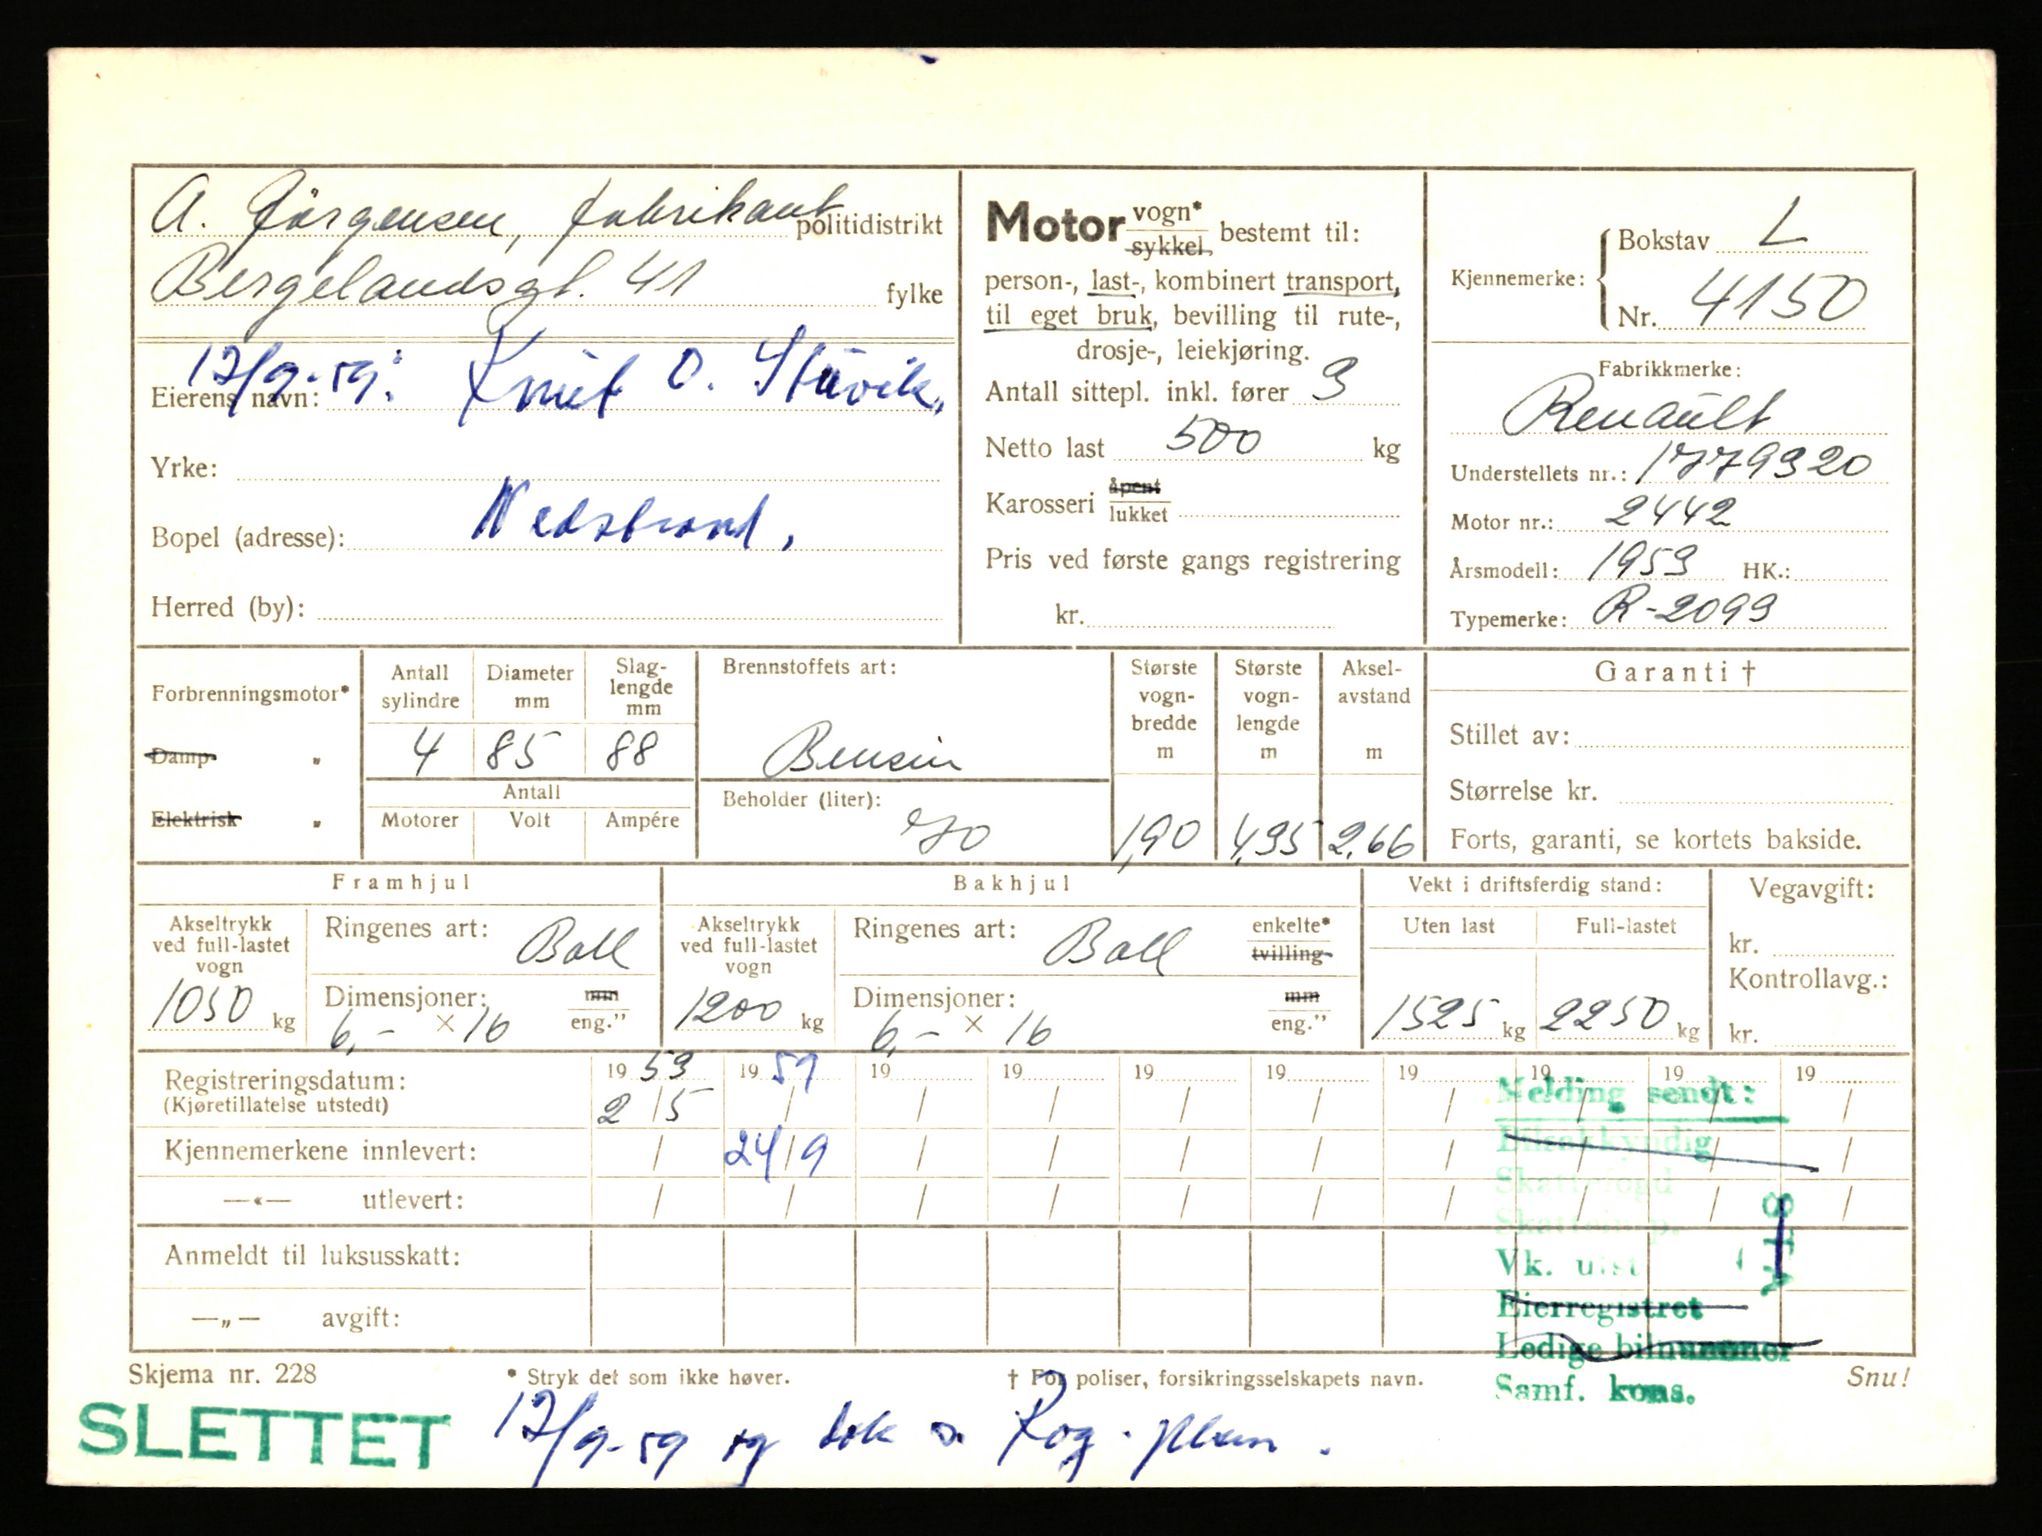 A. Jørgensen, fabrikant politidistrikt
Bergelandsgt. 41 fylke
17/9-59: Knut O. Støvik,
Eierens navn:
Yrke:
Bopel (adresse): Nedstrand,
Herred (by):
Motor vogn* sykkel bestemt til:
person-, last-, kombinert transport,
til eget bruk, bevilling til rute-,
drosje-, leiekjøring.
Antall sittepl. inkl. fører 3
Netto last 500 kg
Karosseri åpent lukket
Pris ved første gangs registrering
kr.
Kjennemerke: Bokstav L
Nr. 4150
Fabrikkmerke:
Renault
Understellets nr.: 1779320
Motor nr.: 2442
Årsmodell: 1953 HK.:
Typemerke: R-2093
Forbrenningsmotor*
Damp- "
Elektrisk "
Antall sylindre
Diameter mm
Slag-lengde mm
4 85 88
Antall
Motorer Volt Ampére
Brennstoffets art:
Bensin
Beholder (liter):
70
Største vogn-bredde m
1,90
Største vogn-lengde m
4,35
Aksel-avstand m
2,66
Garanti †
Stillet av:
Størrelse kr.
Forts, garanti, se kortets bakside.
Framhjul
Akseltrykk ved full-lastet vogn
1050 kg
Ringenes art: Ball
Dimensjoner: mm
6,- × 16 eng."
Bakhjul
Akseltrykk ved full-lastet vogn
1200 kg
Ringenes art: Ball enkelte* tvilling-
Dimensjoner: mm
6,- × 16 eng."
Vekt i driftsferdig stand:
Uten last Full-lastet
1525 kg 2250 kg
Vegavgift:
kr.
Kontrollavg.:
kr.
Registreringsdatum: 19 53 19 59 19 19 19 19 19 19 19 19
(Kjøretillatelse utstedt) 2/5 / / / / / / / / /
Kjennemerkene innlevert: / 24/9 / / / / / / / /
—«— utlevert: / / / / / / / / / /
Anmeldt til luksusskatt:
—„— avgift:
Melding sendt:
Bilsakkyndig
Skattefogd
Skatteinsp.
Vk. utst
Eierregistret
Ledige bilnummer
Samf. kons.
Skjema nr. 228 * Stryk det som ikke høver. † For poliser, forsikringsselskapets navn. Snu!
SLETTET 17/9-59 og dok s. Rog.